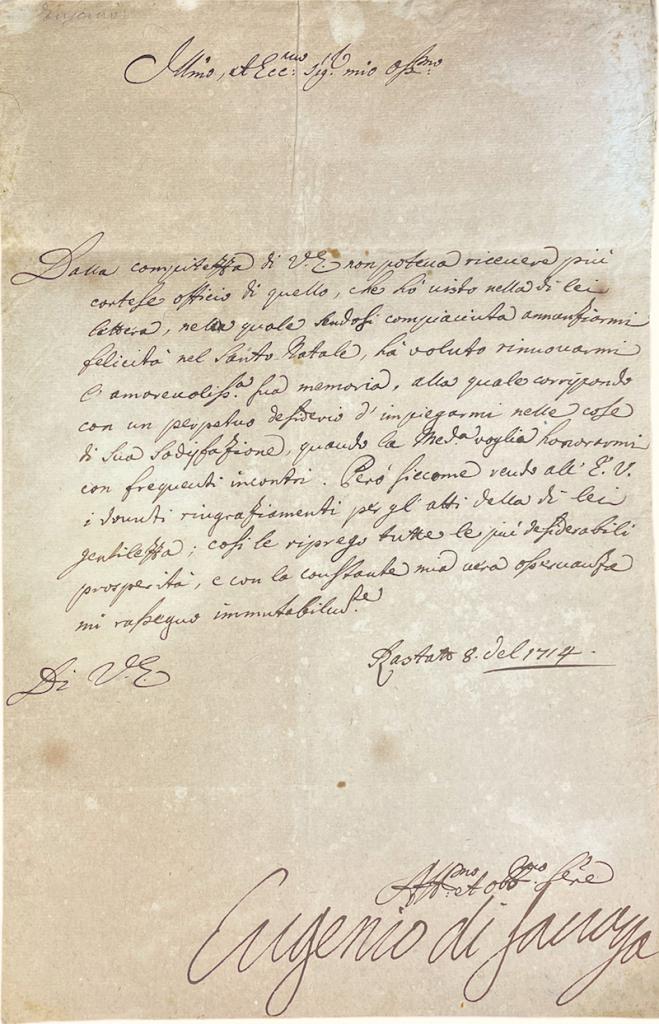 Illmo, et Ecc.mo Sig.r mio oss.mo
Dalla compitezza di V.E. non poteva ricevere più
cortese officio di quello, che hò visto nella di lei
lettera, nella quale sendosi compiaciuta annunziarmi
felicità nel Santo Natale, hà voluto rinnovarmi
l'amorevoliss.a sua memoria, alla quale corrispondo
con un perpetuo desiderio d'impiegarmi nelle cose
di sua sodisfazione, quando la Med.a voglia honorarmi
con frequenti incontri. Però siccome rendo all'E.V.
i dovuti ringraziamenti per gl'atti della di lei
gentilezza; così le riprego tutte le più desiderabili
prosperità, e con la constante mia vera osservanza
mi rassegno immutabilm.te
Di V.E.
Rastatt 8. del 1714.
Aff.mo et obb.mo Se.re
Eugenio di Savoya